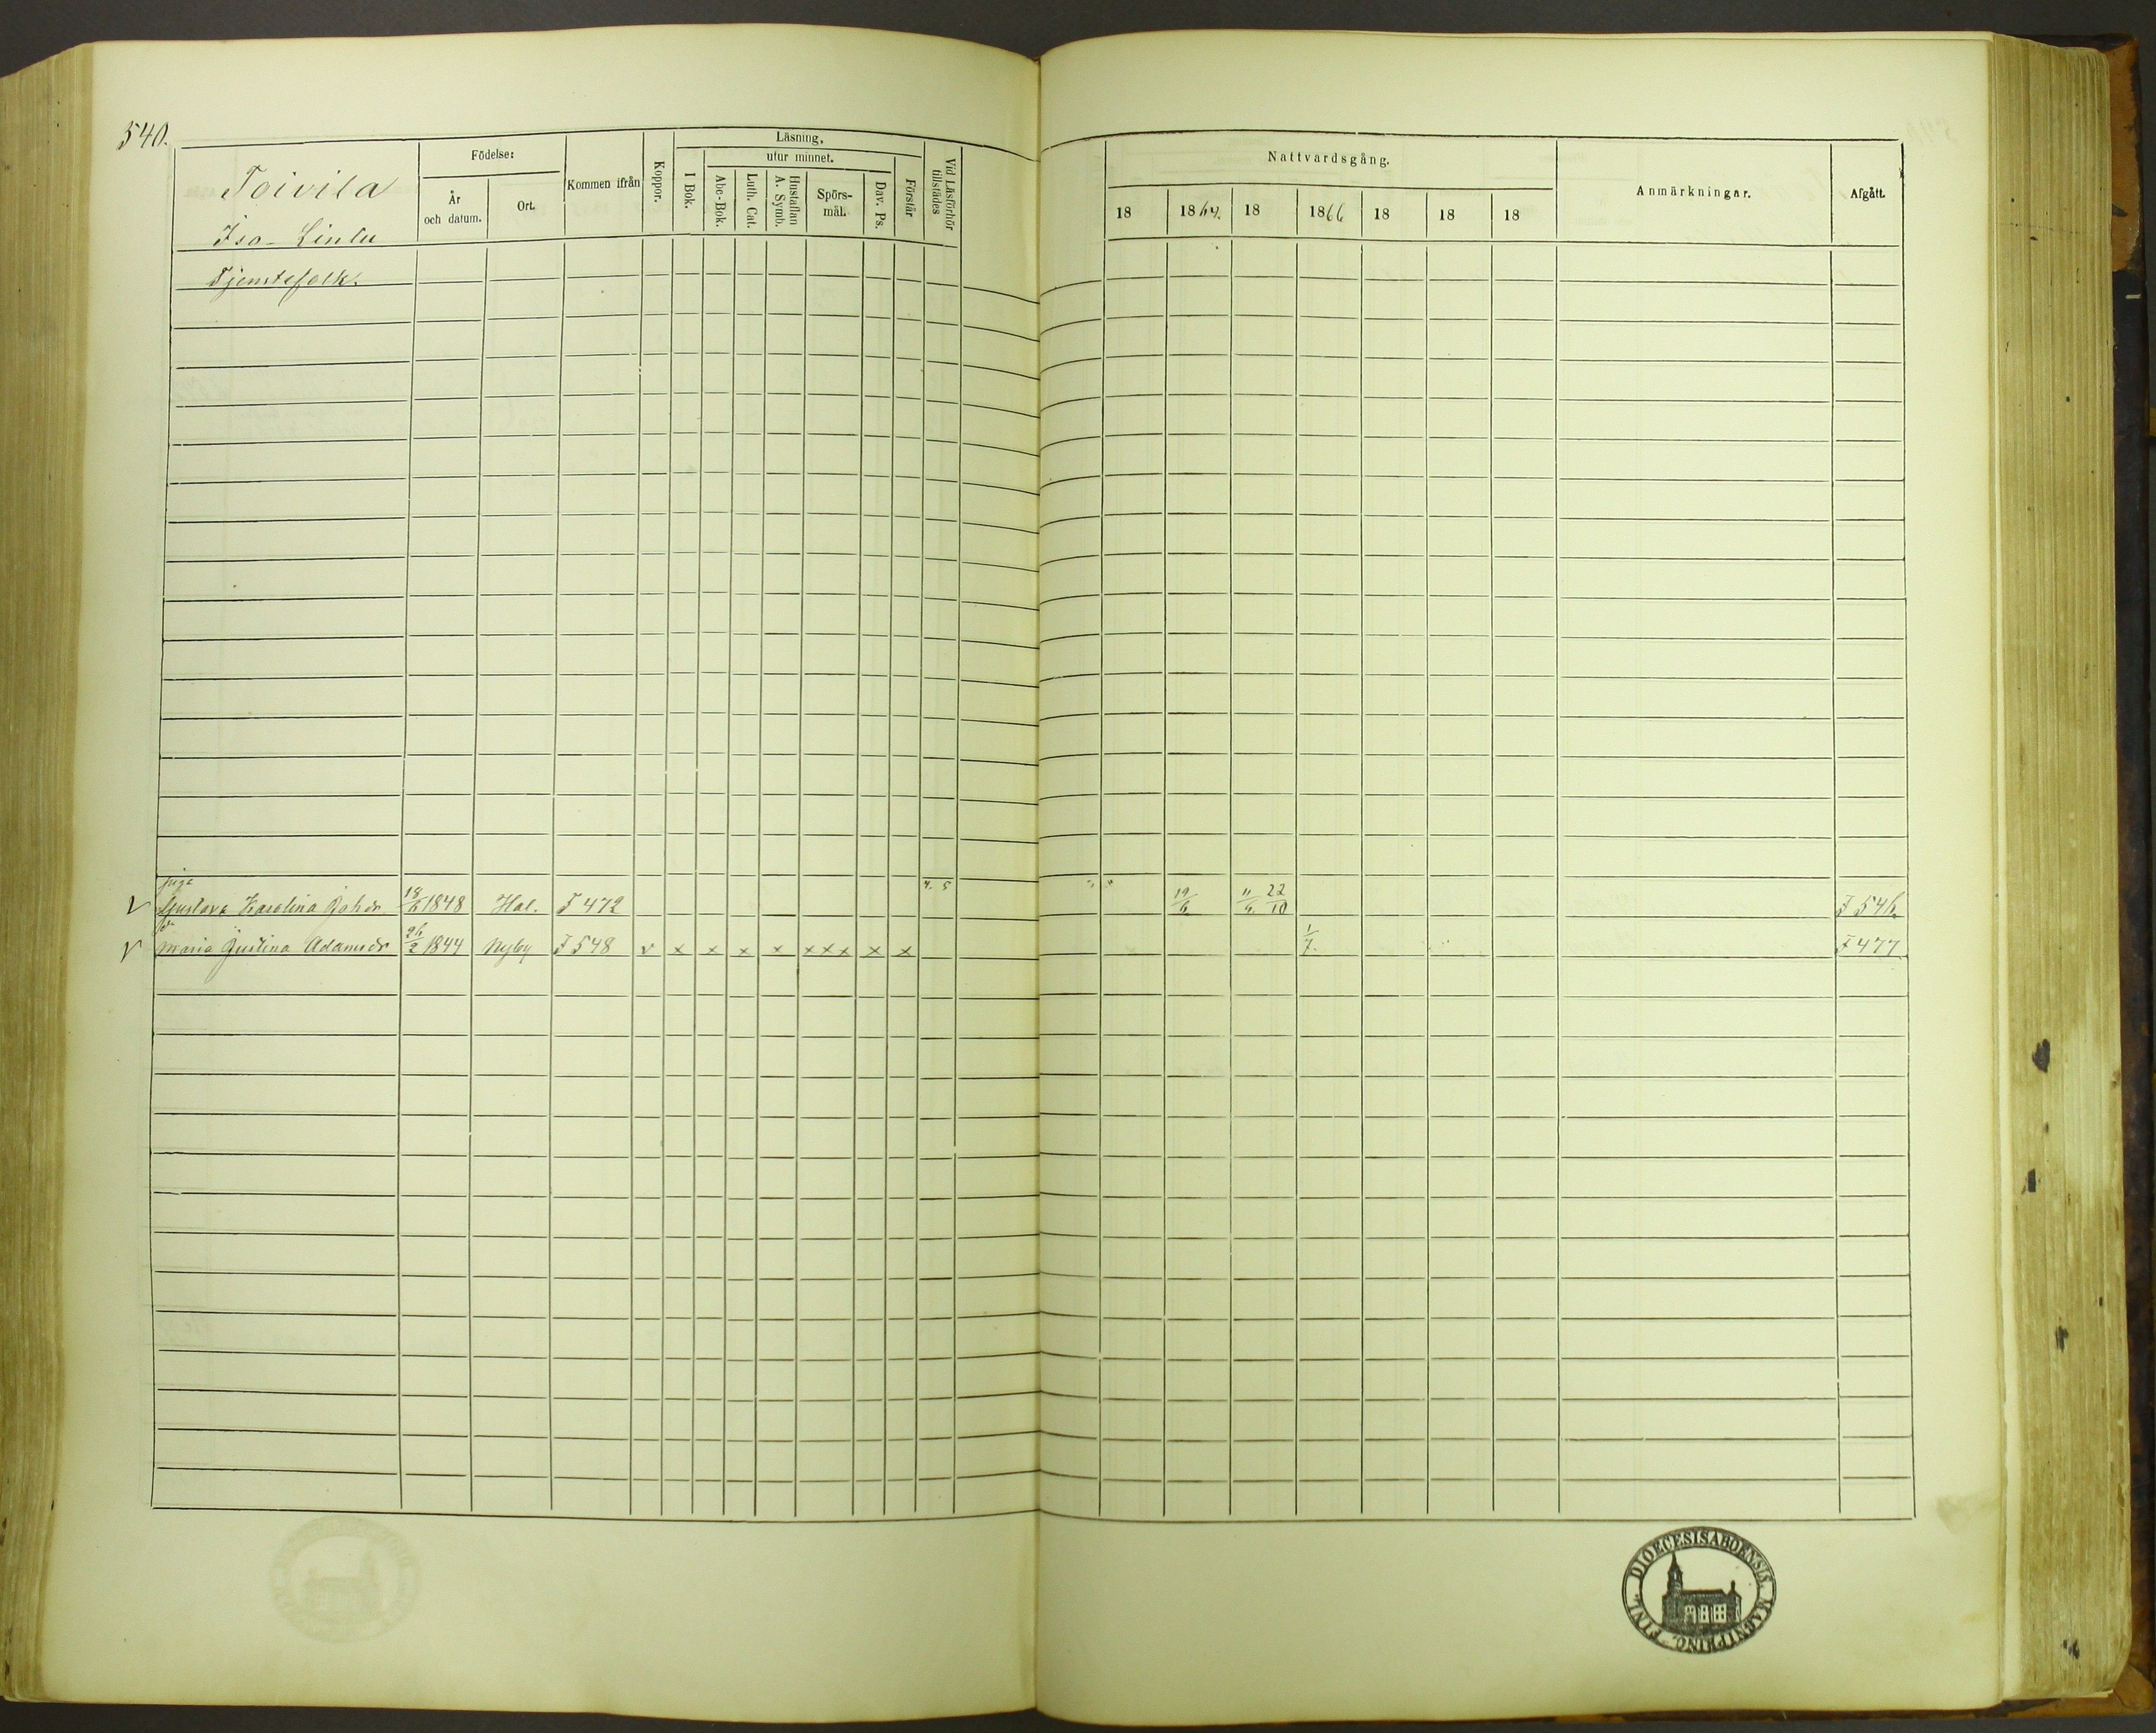 540.
Toivila
Iso-Lintu
Födelse:
År
och datum.
Ort.
Kommen ifrån
Koppor.
Läsning,
I Bok.
utur minnet.
Abc-Bok.
Luth. Cat.
Hustaflan
A. Symb.
Spörs-
mål.
Dav. Ps.
Förstår
Vid Läsförhör
tillstädes
Nattvardsgång.
18 1864. 18 1866 18 18 18
Anmärkningar.
Afgått.
Tjenstefolk.
piga
V Gustava Karolina Johdr 18/6 1848 Hal. F 472 4. 5 " " 19/6 11/4. 22/10 F 546.
do
V Maria Justina Adamsdr 26/2 1844 Nyby F 548 v x x x x xxx x x 1/7. F 477
DIOECESIS ABOENSIS. MAGNI PRINC. FINL.